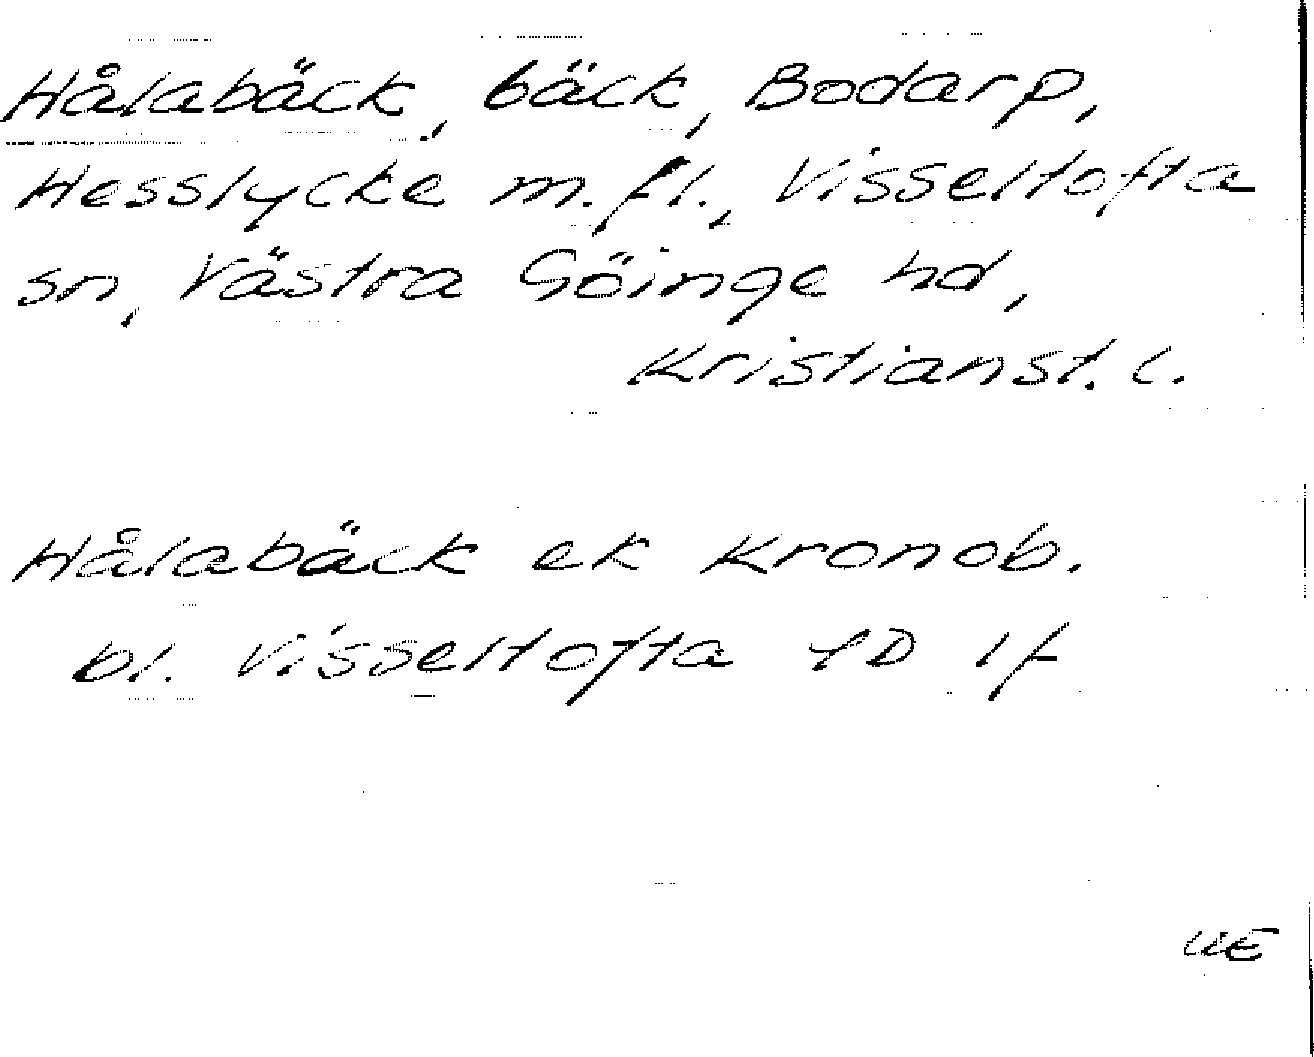 Hålabäck, bäck, Bodarp,
Hesslycke m.fl., Visseltofta
sn, Västra Göinge hd,
Kristianst. l.
Hålabäck ek Kronob.
bl. Visseltofta 4D 1f
UE